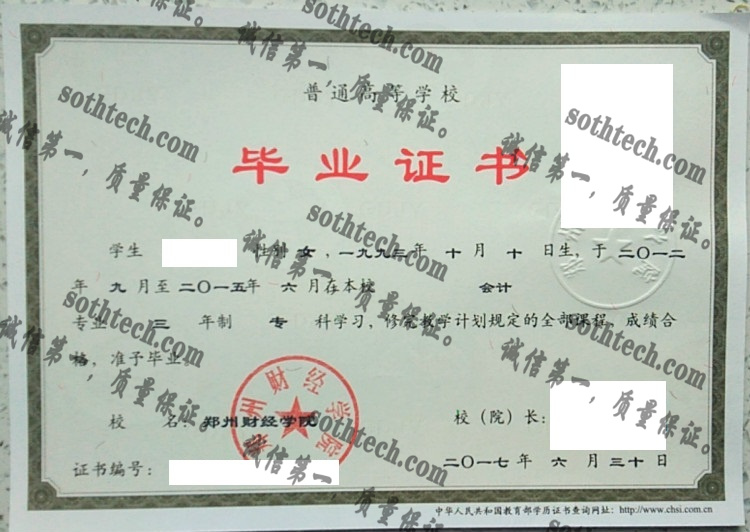 普通高等学校
毕业证书
学生 性别 女，一九九三年 十 月 十 日生，于 二〇一二
年 九 月至 二〇一五年 六 月在本校 会计
专业 三 年制 专 科学习，修完教学计划规定的全部课程，成绩合
格，准予毕业。
校 名：郑州财经学院 校（院）长：
郑州财经学院
证书编号： 二〇一七年 六 月 三十 日
中华人民共和国教育部学历证书查询网址：http://www.chsi.com.cn
sothtech.com
诚信第一，质量保证。
sothtech.com
诚信第一，质量保证。
sothtech.com
诚信第一，质量保证。
sothtech.com
诚信第一，质量保证。
sothtech.com
诚信第一，质量保证。
sothtech.com
诚信第一，质量保证。
sothtech.com
诚信第一，质量保证。